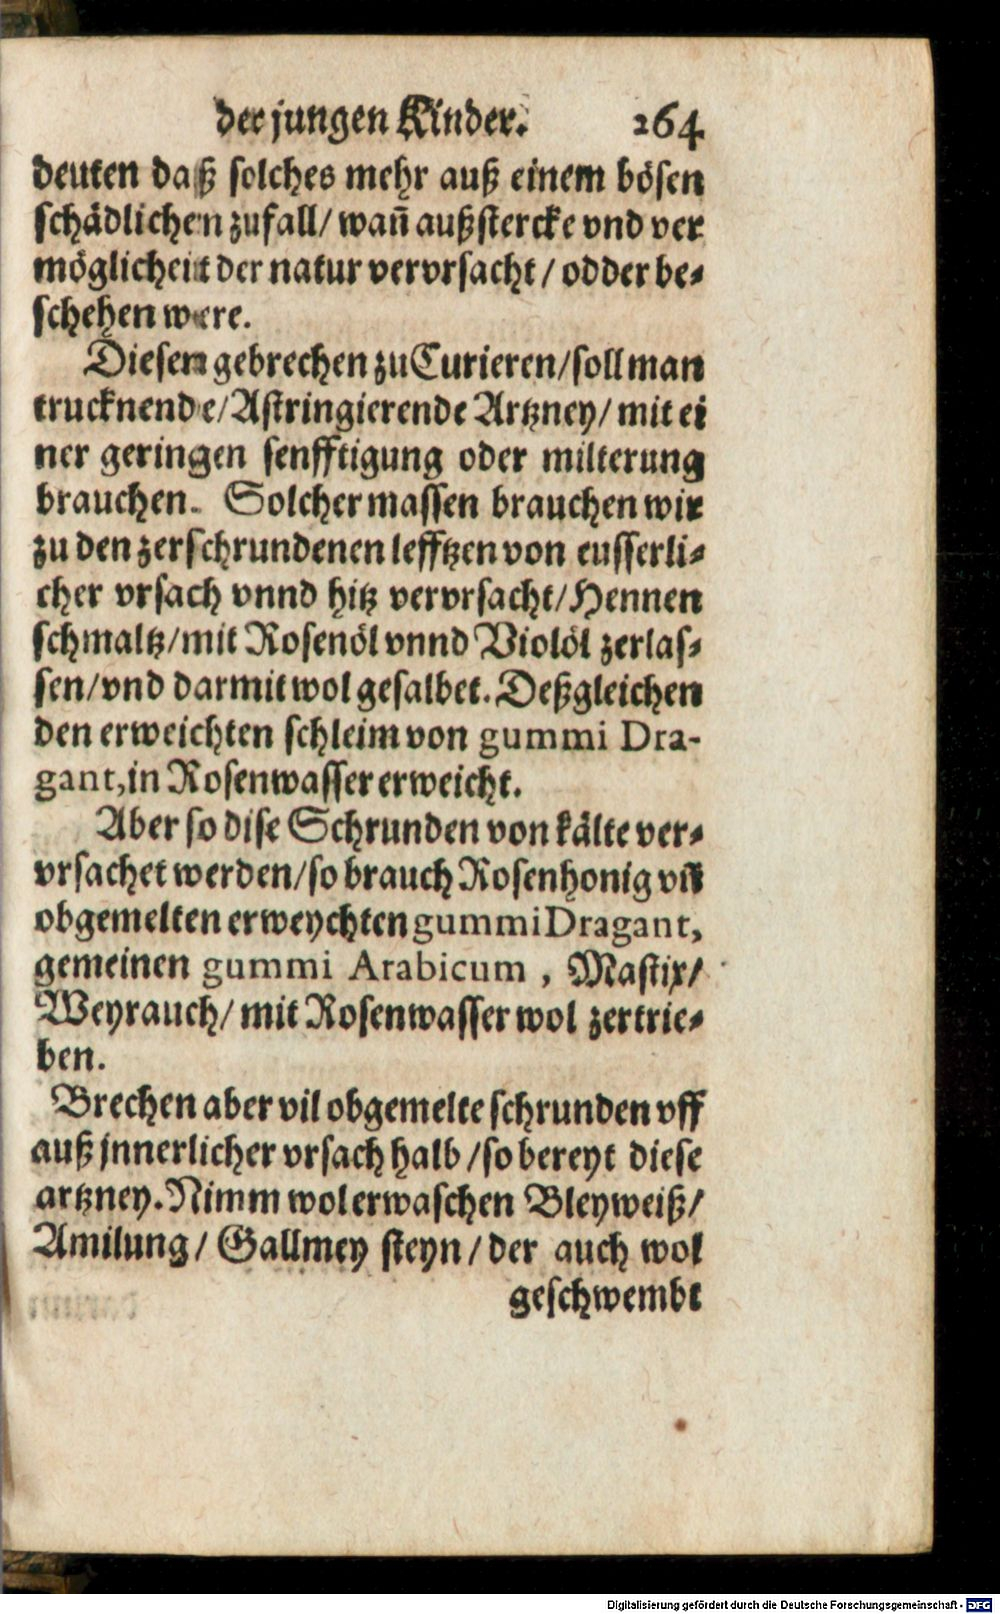 der jungen Kinder. 264
deuten daß solches mehr auß einem bösen
schädlichen zufall/ wañ auß stercke vnd ver
möglicheit der natur vervrsacht/ odder be-
schehen were.
Diesen gebrechen zu Curieren/ soll man
trucknende/ Astringierende Artzney/ mit ei
ner geringen senfftigung oder milterung
brauchen. Solcher massen brauchen wir
zu den zerschrundenen lefftzen von eusserli-
cher vrsach vnnd hitz vervrsacht/ Hennen
schmaltz/ mit Rosenöl vnnd Violöl zerlas-
sen/ vnd darmit wol gesalbet. Deßgleichen
den erweichten schleim von gummi Dra-
gant, in Rosenwasser erweicht.
Aber so dise Schrunden von kälte ver-
vrsachet werden/ so brauch Rosenhonig vñ
obgemelten erweychten gummi Dragant,
gemeinen gummi Arabicum, Mastix/
Weyrauch/ mit Rosenwasser wol zertrie-
ben.
Brechen aber vil obgemelte schrunden vff
auß jnnerlicher vrsach halb/ so bereyt diese
artzney. Nimm wol erwaschen Bleyweiß/
Amilung/ Gallmey steyn/ der auch wol
geschwembt
Digitalisierung gefördert durch die Deutsche Forschungsgemeinschaft - DFG